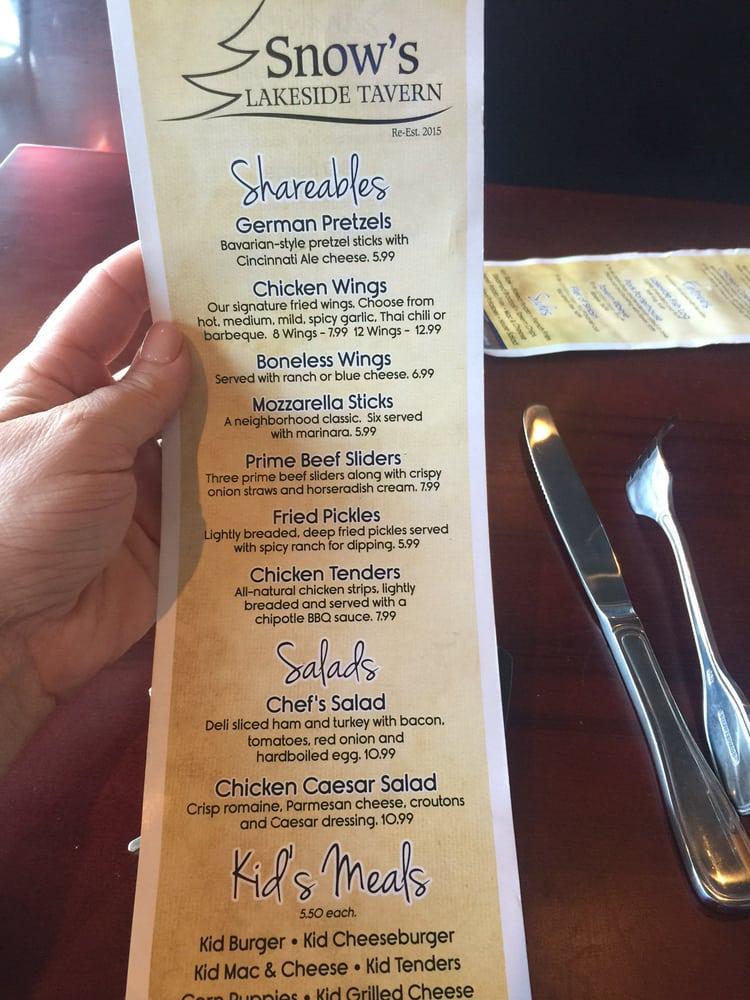 Snow's
LAKESIDE TAVERN
Re-Est. 2015
Shareables
German Pretzels
Bavarian-style pretzel sticks with
Cincinnati Ale cheese. 5.99
Chicken Wings
Our signature fried wings. Choose from
hot, medium, mild, spicy garlic, Thai chili or
barbeque. 8 Wings - 7.99 12 Wings - 12.99
Boneless Wings
Served with ranch or blue cheese. 6.99
Mozzarella Sticks
A neighborhood classic. Six served
with marinara. 5.99
Prime Beef Sliders
Three prime beef sliders along with crispy
onion straws and horseradish cream. 7.99
Fried Pickles
Lightly breaded, deep fried pickles served
with spicy ranch for dipping. 5.99
Chicken Tenders
All-natural chicken strips, lightly
breaded and served with a
chipotle BBQ sauce. 7.99
Salads
Chef's Salad
Deli sliced ham and turkey with bacon,
tomatoes, red onion and
hardboiled egg. 10.99
Chicken Caesar Salad
Crisp romaine, Parmesan cheese, croutons
and Caesar dressing. 10.99
Kid's Meals
5.50 each.
Kid Burger • Kid Cheeseburger
Kid Mac & Cheese • Kid Tenders
Corn Puppies • Kid Grilled Cheese
Sides